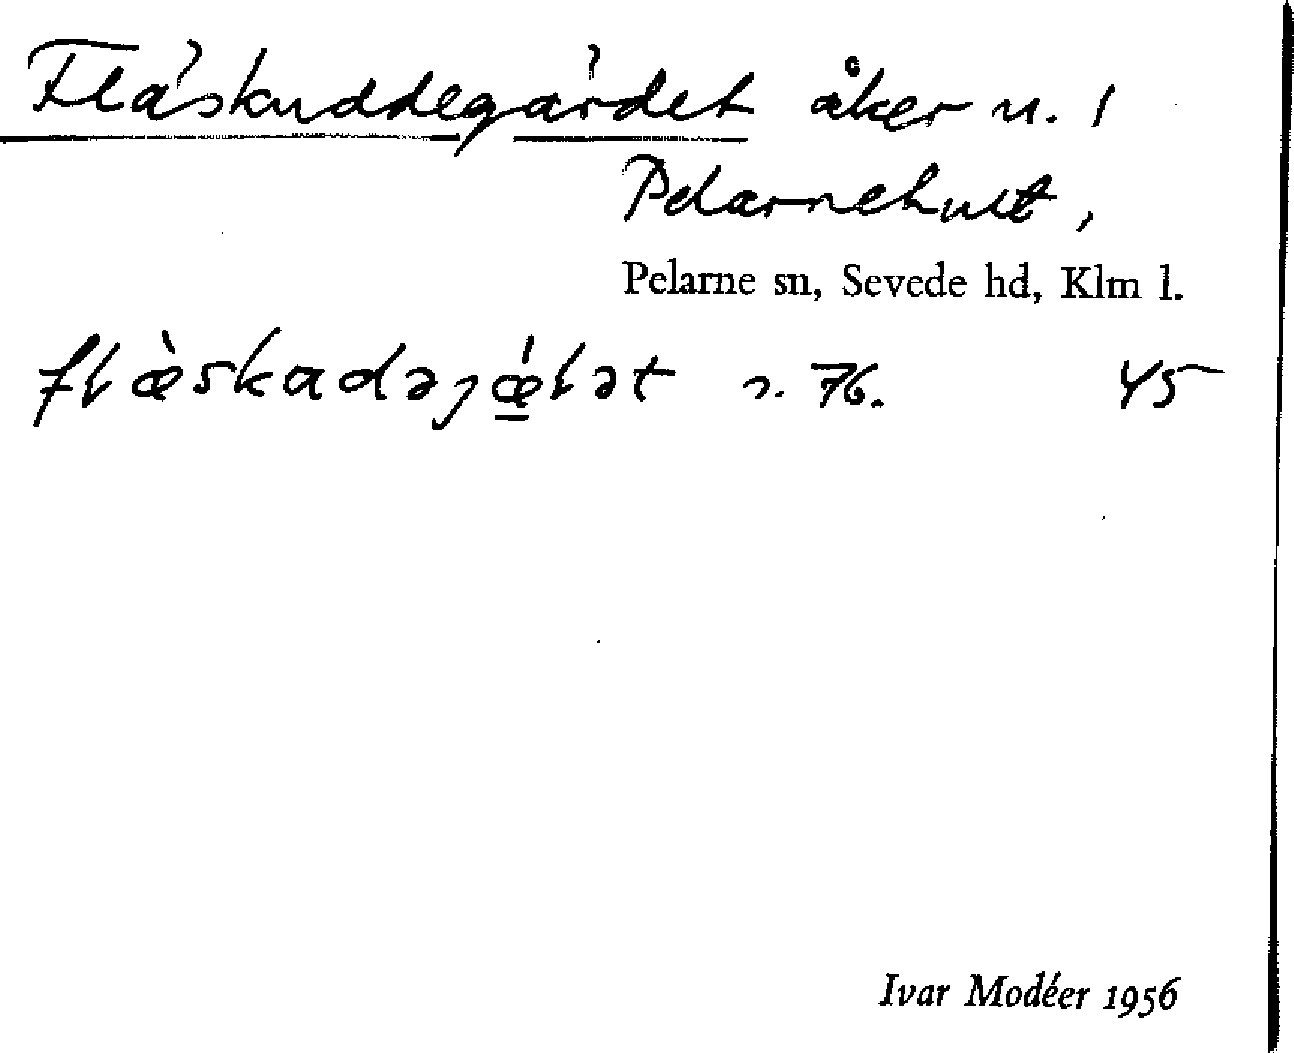 Fläskuddegärdet åker n. 1
Pelarnehult,
Pelarne sn, Sevede hd, Klm l.
flæ̀skadəjǽ̲lət s. 76. 45
Ivar Modéer 1956